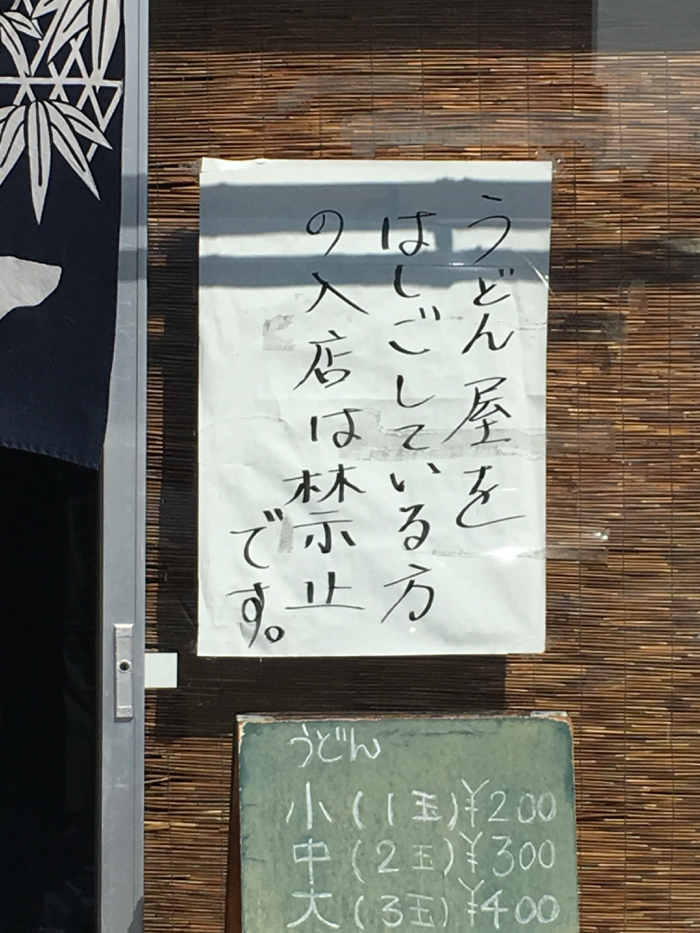 うどん屋を
はしごしている方
の入店は禁止
です。
うどん
小(1玉)¥200
中(2玉)¥300
大(3玉)¥400